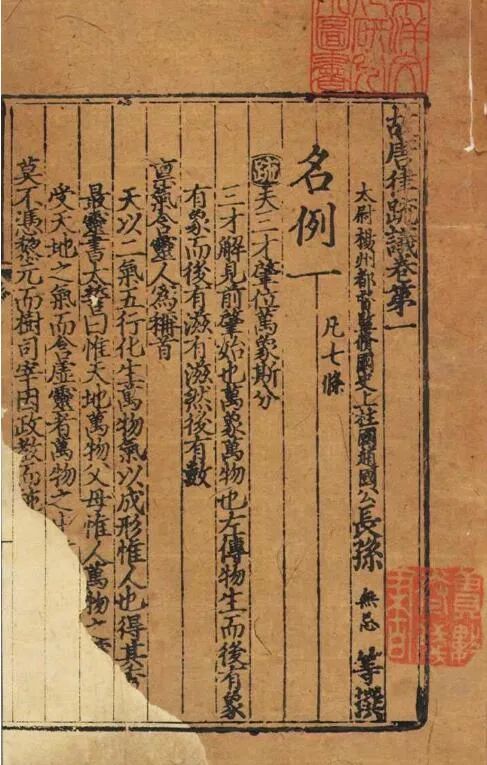 故唐律疏議卷第一
太尉揚州都督監脩國史上柱國趙國公長孫無忌等撰
名例一 凡七條
疏夫三才肇位萬象斯分
三才解見前肇始也萬象萬物也左傳物生而後有象
有象而後有滋有滋然後有數
稟氣含靈人為稱首
天以二氣五行化生萬物氣以成形惟人也得其
最靈書太誓曰惟天地萬物父母惟人萬物之
受天地之氣而含虛靈者萬物之
莫不憑黎元而樹司宰因政教而